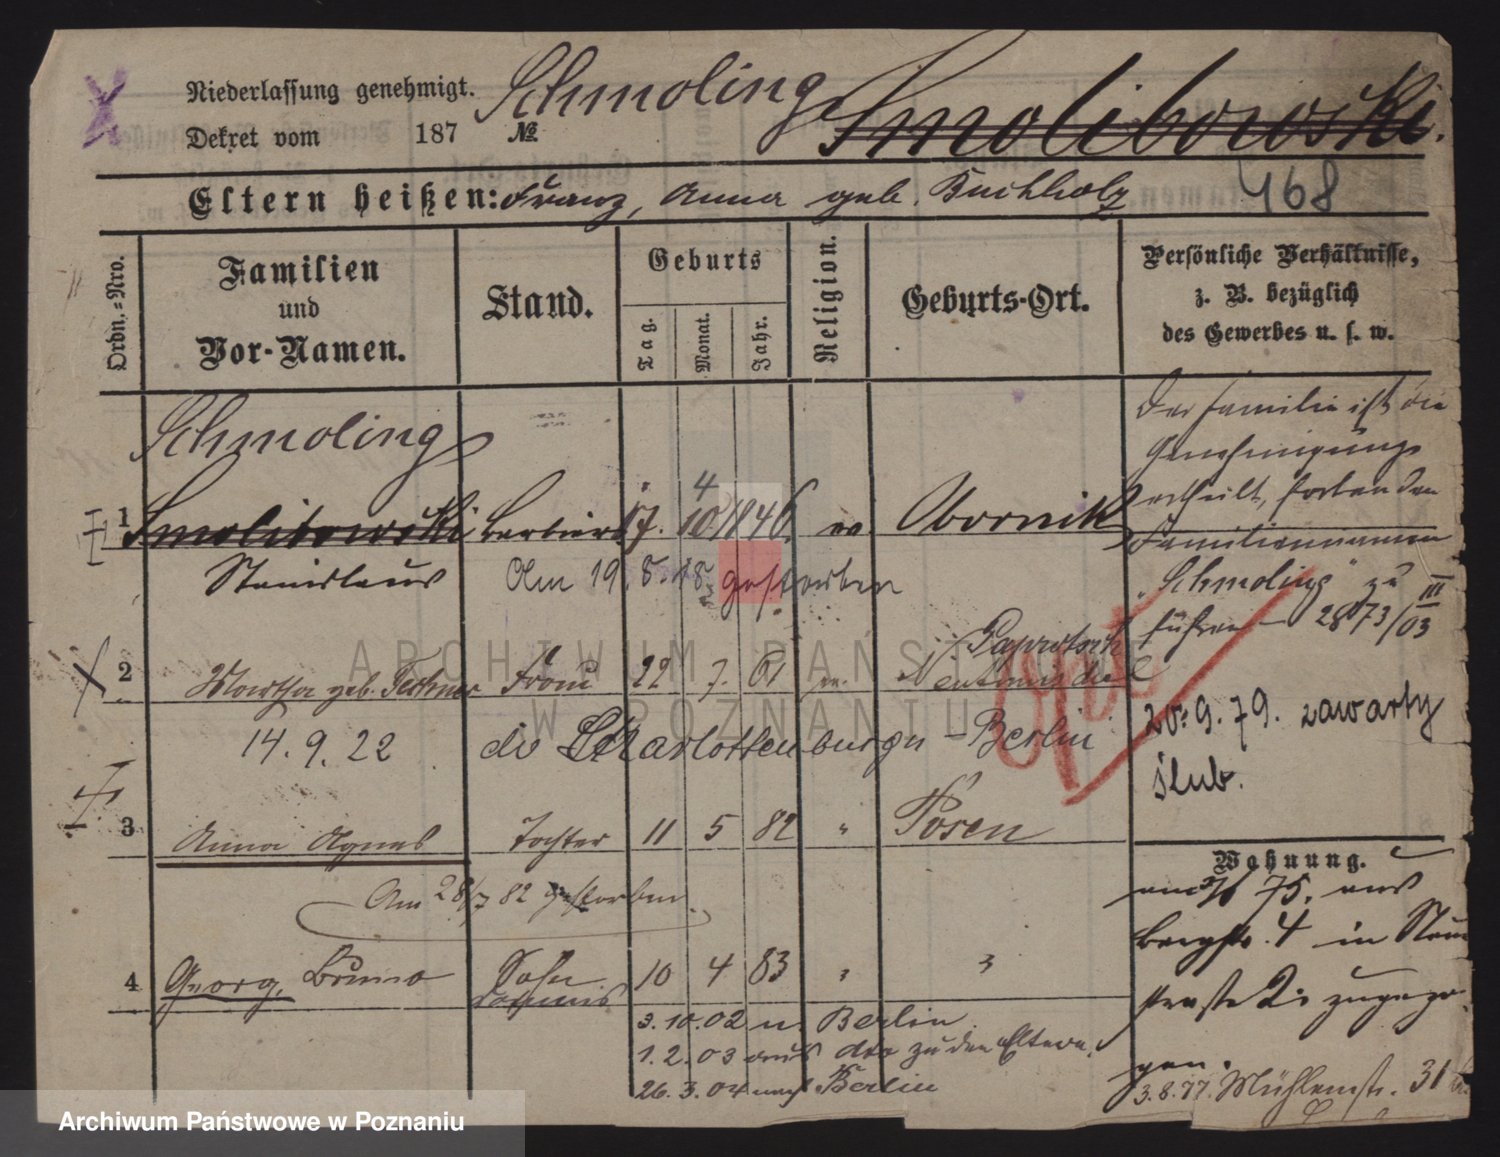 Niederlassung genehmigt. Schmoling Smolibowski.
Dekret vom 187 №
Eltern heißen: Franz, Anna geb. Buchholz 468
Ordn.-Nro.
Familien und Vor-Namen.
Stand.
Geburts
Tag. Monat. Jahr.
Religion.
Geburts-Ort.
Persönliche Verhältnisse,
z. B. bezüglich
des Gewerbes u. s. w.
Schmoling
1 Smolibowski Barbier 17. 10 4 1846 Obornik
Stanislaus Am 19. 8. 18 gestorben
Der Familie ist die
Genehmigung
ertheilt, fortan den
Familiennamen
"Schmoling" zu
führen - 2873/03 III
2 Martha geb. Frau 22 7. 61
14. 9. 22 do Charlottenburga - Berlin
20. 9. 79. zawarty
ślub.
3 Anna Agnes Tochter 11 5 82 " Posen
Am 28/7 82 gestorben.
4 Georg, Bruno Sohn 10 4 83 " "
Commis
3. 10. 02 n. Berlin
1. 2. 03 aus do zu den Eltern.
26. 3. 04 nach Berlin
Wohnung.
75. aus
Bergstr. 4 in
straße zugezo-
gen.
3. 8. 77. Mühlenstr. 31
ARCHIWUM PAŃST
W POZNANIU
Archiwum Państwowe w Poznaniu